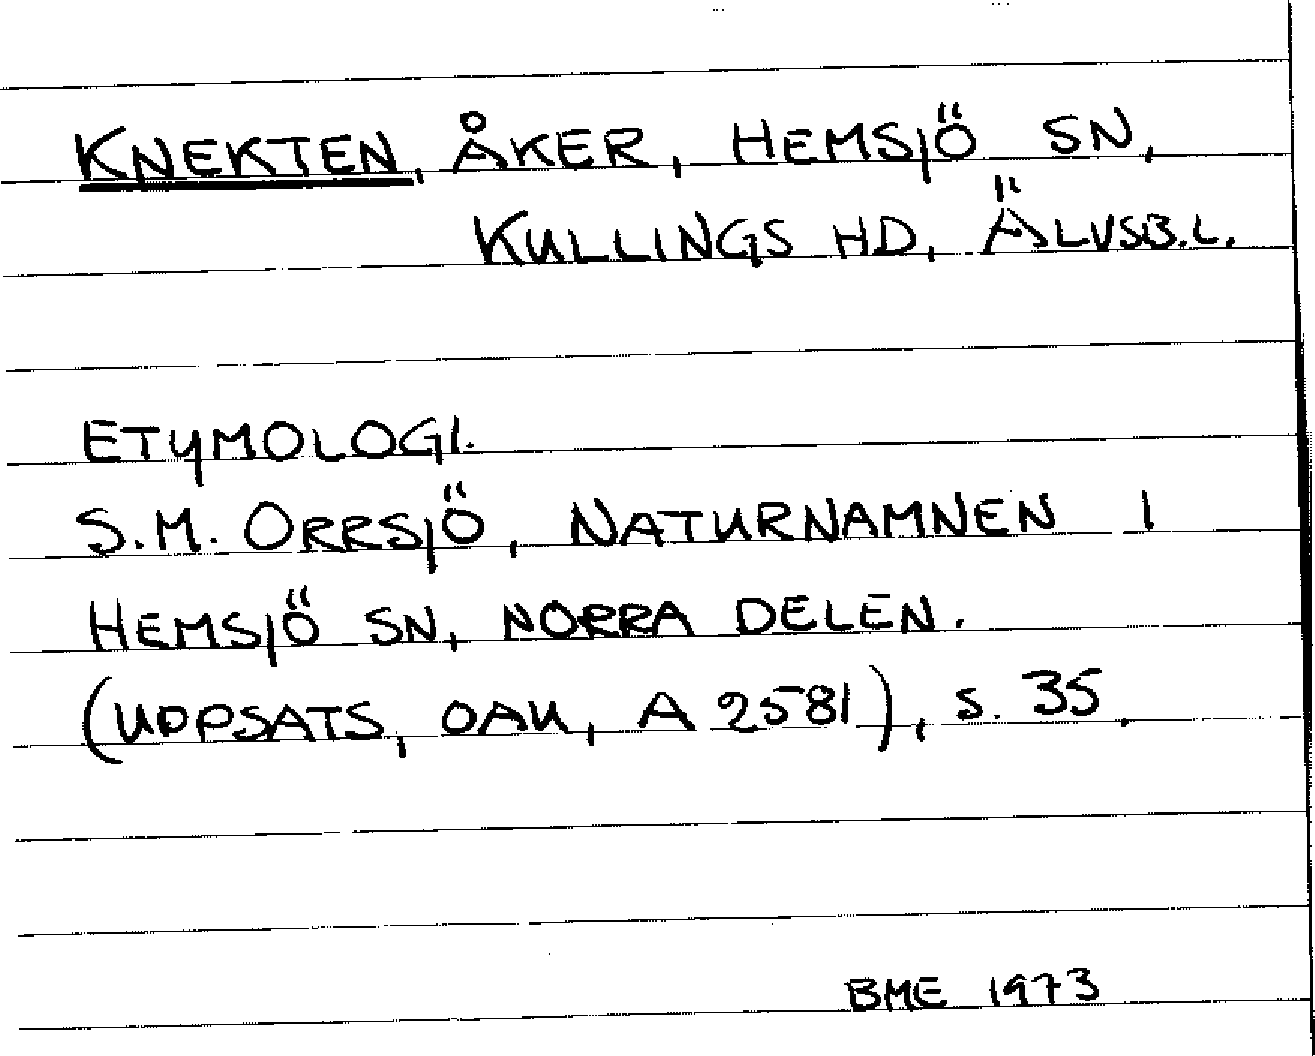 KNEKTEN, ÅKER, HEMSJÖ SN,
KULLINGS HD, ÄLVSB.L.
ETYMOLOGI.
S.M. ORRSJÖ, NATURNAMNEN I
HEMSJÖ SN, NORRA DELEN.
(UPPSATS, OAU, A 2581), S. 35.
BME 1973